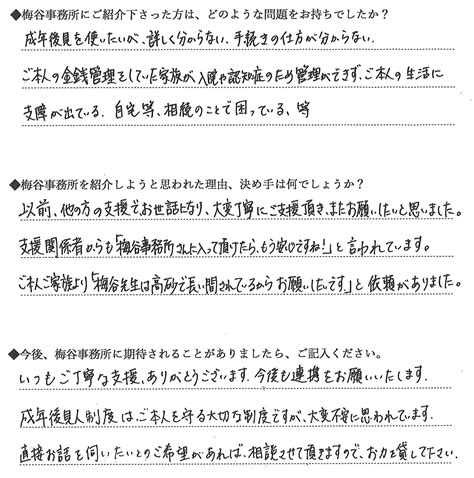 ◆梅谷事務所にご紹介下さった方は、どのような問題をお持ちでしたか？
成年後見を使いたいが、詳しく分からない、手続きの仕方が分からない.
ご本人の金銭管理をしていた家族が入院や認知症のため管理ができず、ご本人の生活に
支障が出ている. 自宅等、相続のことで困っている、等
◆梅谷事務所を紹介しようと思われた理由、決め手は何でしょうか？
以前、他の方の支援でお世話になり、大変丁寧にご支援頂き、またお願いしたいと思いました。
支援関係者からも「梅谷事務所さんに入って頂けたら、もう安心ですね!」と言われています。
ご本人ご家族より「梅谷先生は高砂で長い間されているからお願いしたいです」と依頼がありました。
◆今後、梅谷事務所に期待されることがありましたら、ご記入ください。
いつもご丁寧な支援、ありがとうございます. 今後も連携をお願いいたします.
成年後見人制度はご本人を守る大切な制度ですが、大変不安に思われています.
直接お話を伺いたいとのご希望があれば、相談させて頂きますので、お力を貸して下さい.